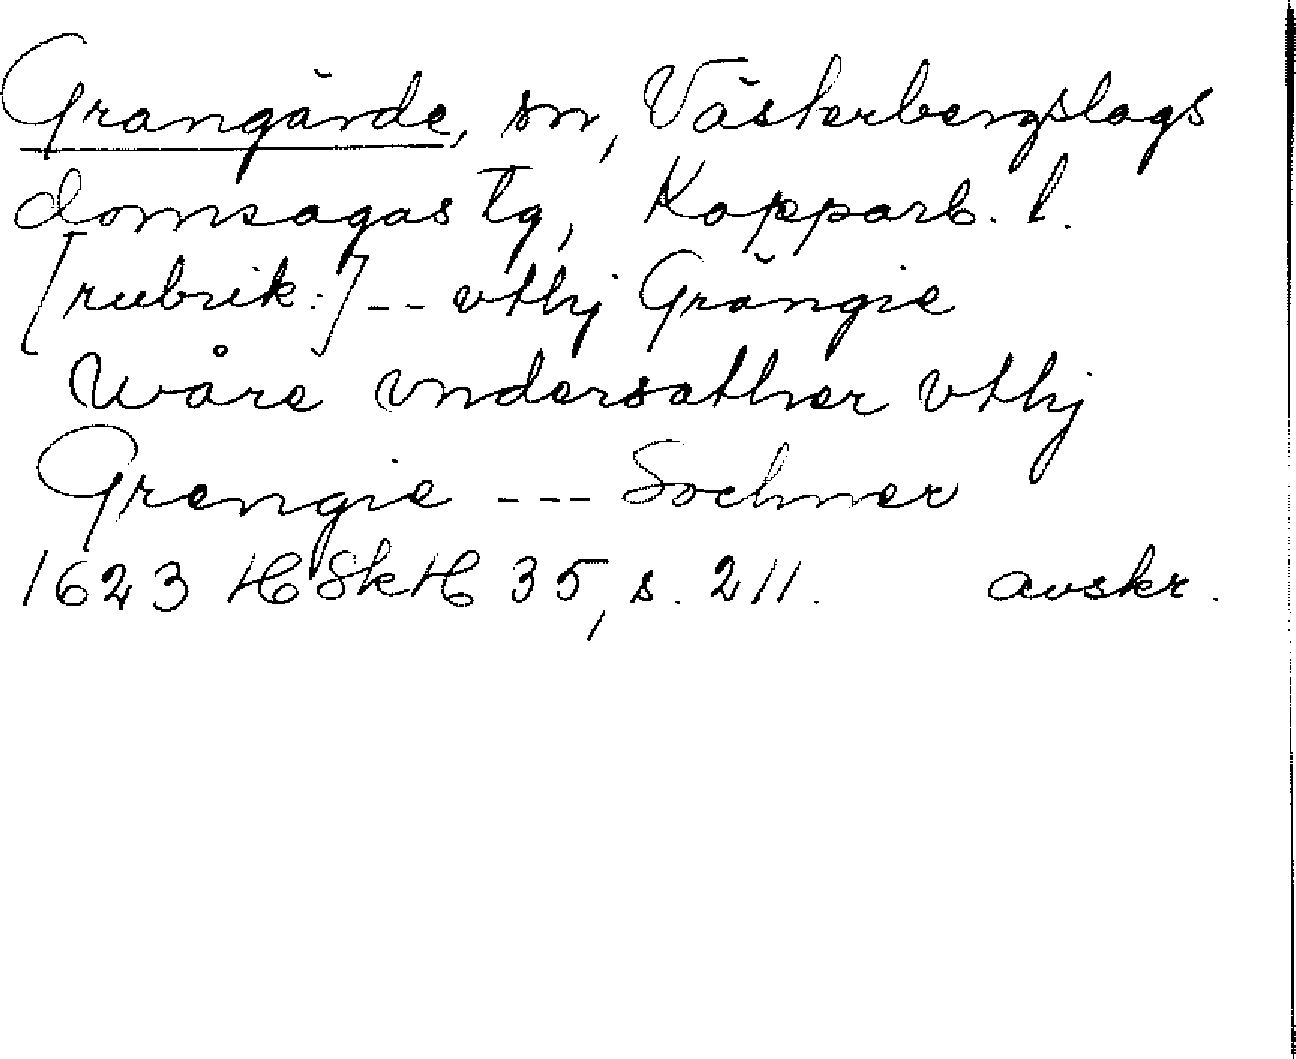 Grangärde, sn, Västerbergslags
domsagas tg, Kopparb. l.
[rubrik:] -- vthj Grängie
Wåre vndersather vthj
Grengie --- Sochner
1623 HSkH 35, s. 211. avskr.